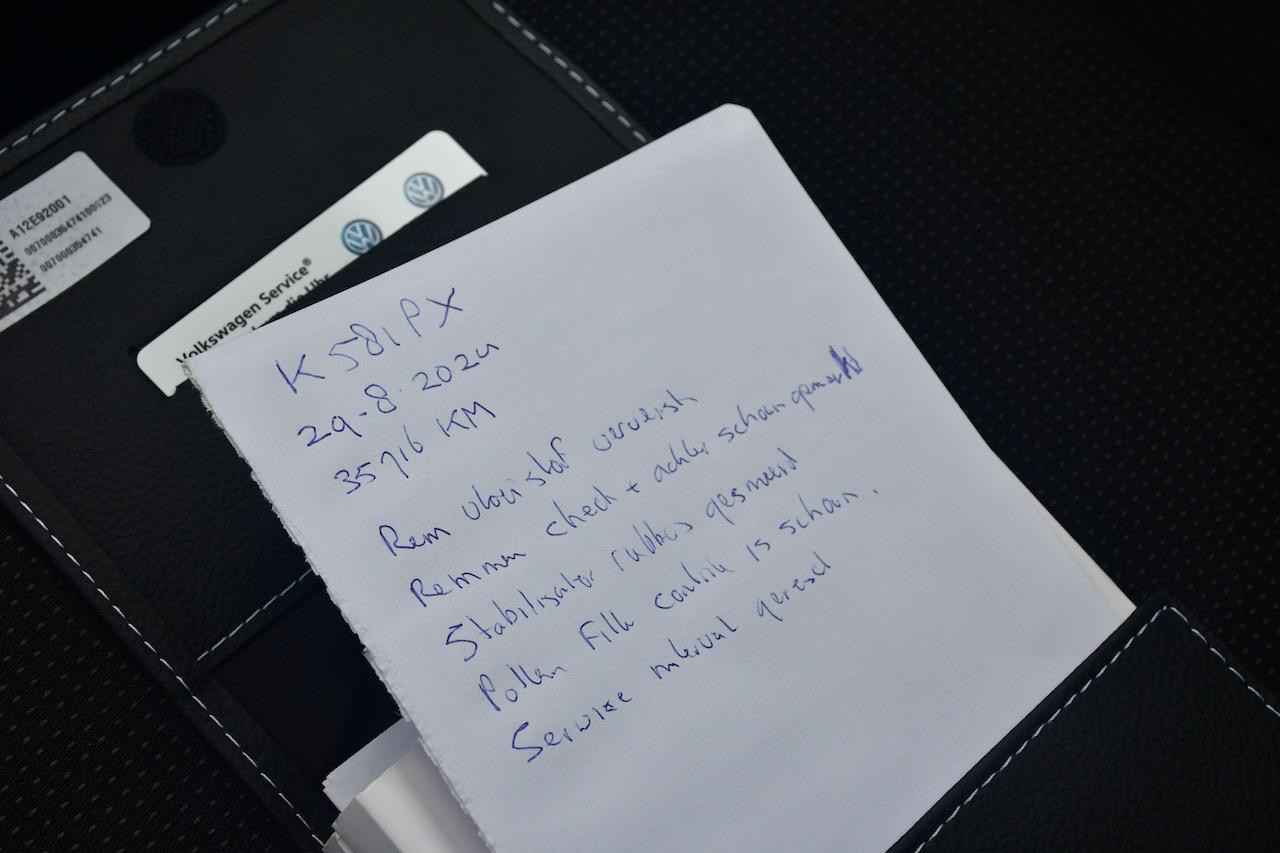 A12E92001
007000364741
Volkswagen Service®
K581PX
29-8-2024
35716 KM
Rem vloeistof ververst
Remmen check + achter schoongemaakt
Stabilisator rubbers gesmeerd
Pollen Filter controle is schoon.
Service interval gereset